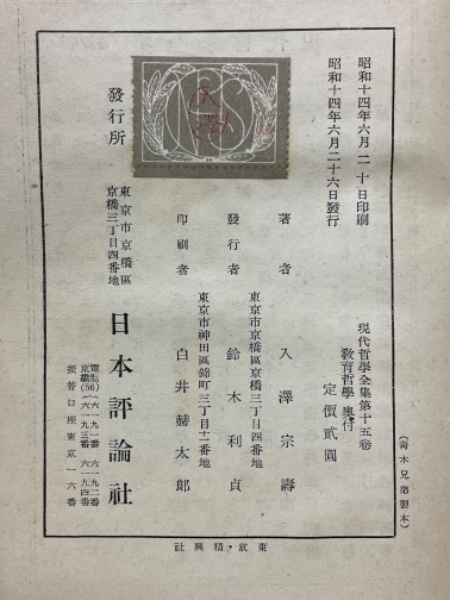 昭和十四年六月二十日印刷
昭和十四年六月二十六日發行
現代哲學全集第十五卷
教育哲學 奧付
定價貳圓
著者 入澤宗壽
東京市京橋區京橋三丁目四番地
發行者 鈴木利貞
東京市神田區錦町三丁目十一番地
印刷者 白井赫太郎
發行所
東京市京橋區
京橋三丁目四番地
日本評論社
電話
京橋(56)
六一九一番 六一九二番
六一九三番 六一九四番
振替口座東京一六番
(青木兄弟製本)
東京・精興社
入澤